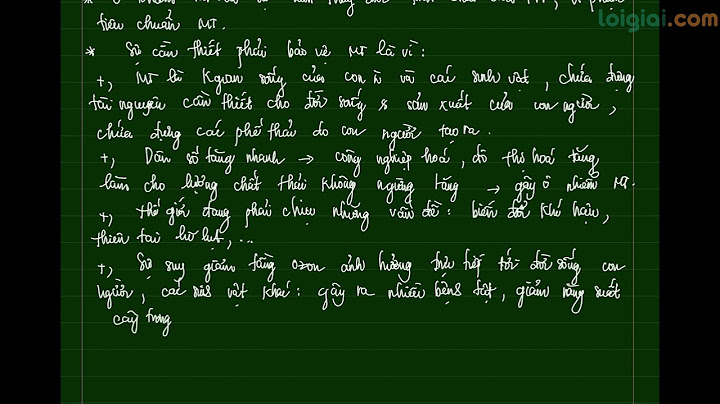 loigiai.com
tiêu chuẩn MT.
* Sự cần thiết phải bảo vệ MT là vì:
+, MT là kgian sống của con n và các sinh vật, chứa đựng
tài nguyên cần thiết cho đời sống & sản xuất của con người,
chứa đựng các phế thải do con người tạo ra.
+, Dân số tăng nhanh → công nghiệp hoá, đô thị hoá tăng
làm cho lượng chất thải không ngừng tăng → gây ô nhiễm MT.
+, thế giới đang phải chịu những vấn đề: biến đổi khí hậu,
thiên tai lũ lụt,...
+, Sự suy giảm tầng ozon ảnh hưởng trực tiếp tới đời sống con
người, các sinh vật khác: gây ra nhiều bệnh tật, giảm năng suất
cây trong